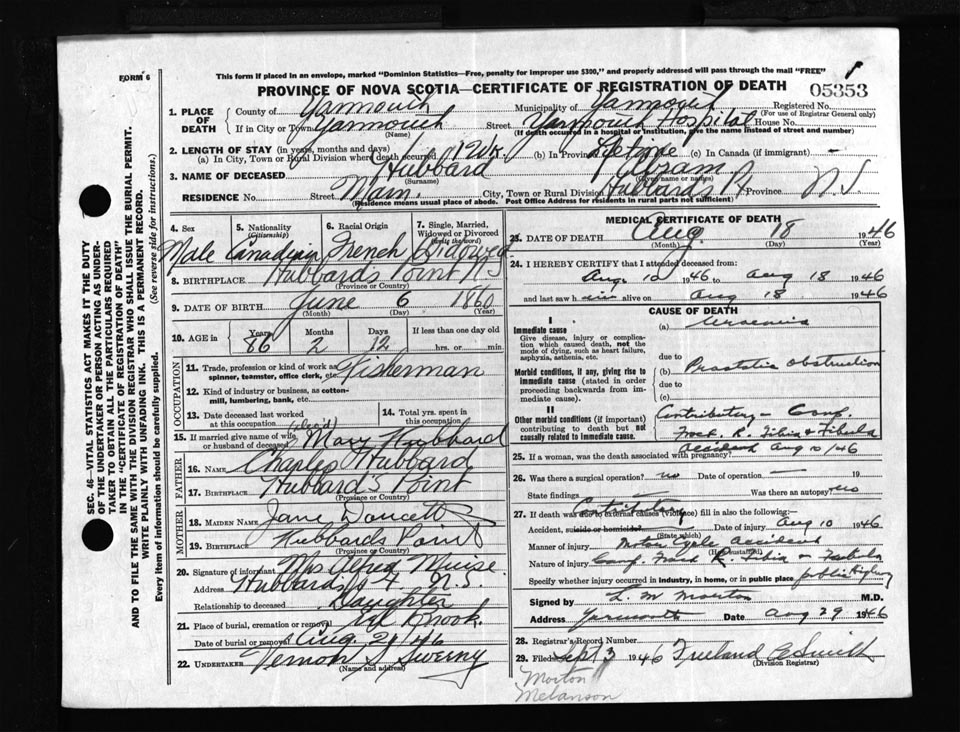 FORM 6
This form if placed in an envelope, marked "Dominion Statistics—Free, penalty for improper use $300," and properly addressed will pass through the mail "FREE"
PROVINCE OF NOVA SCOTIA—CERTIFICATE OF REGISTRATION OF DEATH
05353
1. PLACE OF DEATH
County of Yarmouth Municipality of Yarmouth Registered No.
(For use of Registrar General only)
If in City or Town Yarmouth Street Yarmouth Hospital House No.
(Name) (If death occurred in a hospital or institution, give the name instead of street and number)
2. LENGTH OF STAY (in years, months and days)
(a) In City, Town or Rural Division where death occurred 1 Wk (b) In Province Lifetime (c) In Canada (if immigrant) —
3. NAME OF DECEASED Hubbard
(Surname) (Given name or names)
RESIDENCE No. Street Main City, Town or Rural Division Hubbards Pt Province N.S.
(Residence means usual place of abode. Post Office Address for residents in rural parts not sufficient)
4. Sex
5. Nationality (Citizenship)
6. Racial Origin
7. Single, Married, Widowed or Divorced (write the word)
Male Canadian French Widowed
8. BIRTHPLACE Hubbards Point N.S
(Province or Country)
9. DATE OF BIRTH June 6 1860
(Month) (Day) (Year)
10. AGE in
Years Months Days If less than one day old
86 2 12 hrs. or min.
OCCUPATION
11. Trade, profession or kind of work as spinner, teamster, office clerk, etc. Fisherman
12. Kind of industry or business, as cotton-mill, lumbering, bank, etc.
13. Date deceased last worked at this occupation
14. Total yrs. spent in this occupation
15. If married give name of wife or husband of deceased (dec'd) Mary Hubbard
FATHER
16. NAME Charles Hubbard
17. BIRTHPLACE Hubbard's Point
(Province or Country)
MOTHER
18. MAIDEN NAME Jane Doucett
19. BIRTHPLACE Hubbards Point
(Province or Country)
20. Signature of informant Mrs Alfred Muise
Address Hubbards Pt. N.S.
Relationship to deceased Daughter
21. Place of burial, cremation or removal Eel Brook.
Date of burial or removal Aug. 21/46
22. UNDERTAKER Vernon S. Sweeny
(Name and address)
MEDICAL CERTIFICATE OF DEATH
23. DATE OF DEATH Aug 18 1946
(Month) (Day) (Year)
24. I HEREBY CERTIFY that I attended deceased from:
Aug. 10 1946 to Aug 18 1946
and last saw him alive on Aug 18 1946
CAUSE OF DEATH
I
Immediate cause
Give disease, injury or complication which caused death, not the mode of dying, such as heart failure, asphyxia, asthenia, etc.
(a) Uraemia
due to
Morbid conditions, if any, giving rise to immediate cause (stated in order proceeding backwards from immediate cause)
(b) Prostatic Obstruction
due to
(c)
II
Other morbid conditions (if important) contributing to death but not causally related to immediate cause.
Contributory — Comp.
Fract. R. Tibia & Fibula
accident Aug 10/46
25. If a woman, was the death associated with pregnancy?
26. Was there a surgical operation? no Date of operation — 19
State findings Was there an autopsy? no
Contributory
27. If death was due to external causes (violence) fill in also the following:—
Accident, suicide or homicide? Date of injury Aug 10 1946
(State which)
Manner of injury Motor Cycle accident
(How sustained)
Nature of injury Comp. Fract R. Tibia + Fibula
Specify whether injury occurred in industry, in home, or in public place public Highway
Signed by L. M. Morton M.D.
Address Yarmouth Date Aug 29 1946
28. Registrar's Record Number
29. Filed Sept 3 1946 Freeland E Smith
(Division Registrar)
Morton
Melanson
SEC. 46—VITAL STATISTICS ACT MAKES IT THE DUTY OF THE UNDERTAKER OR PERSON ACTING AS UNDERTAKER TO OBTAIN ALL THE PARTICULARS REQUIRED IN THE "CERTIFICATE OF REGISTRATION OF DEATH" AND TO FILE THE SAME WITH THE DIVISION REGISTRAR WHO SHALL ISSUE THE BURIAL PERMIT.
WRITE PLAINLY WITH UNFADING INK. THIS IS A PERMANENT RECORD.
Every item of information should be carefully supplied. (See reverse side for instructions.)